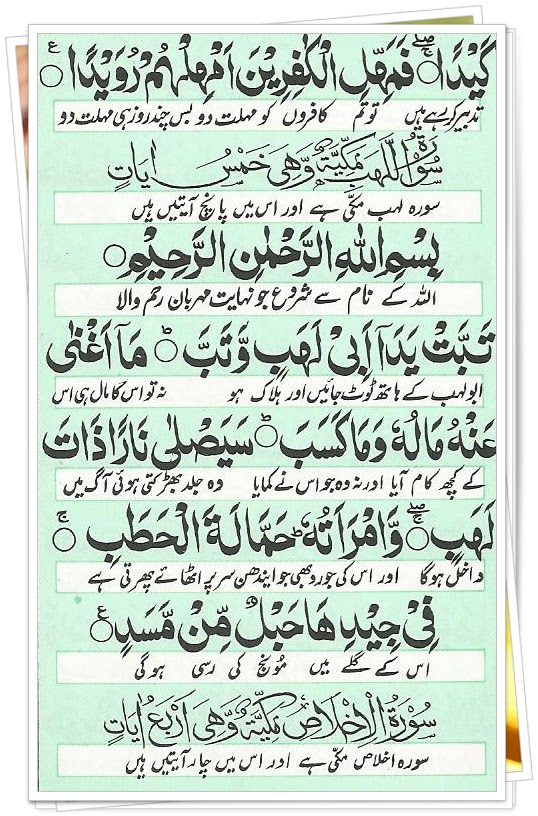 كَيْدًا ○ فَمَهِّلِ الْكٰفِرِيْنَ اَمْهِلْهُمْ رُوَيْدًا ○
تدبیر کر رہے ہیں تو تم کافروں کو مہلت دو بس چند روز ہی مہلت دو
سُوْرَةُ اللَّهَبِ مَكِّيَّةٌ وَّهِيَ خَمْسُ اٰيَاتٍ
سورہ لہب مکّی ہے اور اس میں پانچ آیتیں ہیں
بِسْمِ اللهِ الرَّحْمٰنِ الرَّحِيْمِ ○
اللہ کے نام سے شروع جو نہایت مہربان رحم والا
تَبَّتْ يَدَآ اَبِيْ لَهَبٍ وَّتَبَّ ○ مَآ اَغْنٰى
ابو لہب کے ہاتھ ٹوٹ جائیں اور ہلاک ہو نہ تو اس کا مال ہی اس
عَنْهُ مَالُهٗ وَمَا كَسَبَ ○ سَيَصْلٰى نَارًا ذَاتَ
کے کچھ کام آیا اور نہ وہ جو اس نے کمایا وہ جلد بھڑکتی ہوئی آگ میں
لَهَبٍ ○ وَّامْرَاَتُهٗ حَمَّالَةَ الْحَطَبِ ○
داخل ہو گا اور اس کی جورو بھی جو ایندھن سر پر اٹھائے پھرتی ہے
فِيْ جِيْدِهَا حَبْلٌ مِّنْ مَّسَدٍ ○
اس کے گلے میں مونج کی رسی ہو گی
سُوْرَةُ الْاِخْلَاصِ مَكِّيَّةٌ وَّهِيَ اَرْبَعُ اٰيَاتٍ
سورہ اخلاص مکّی ہے اور اس میں چار آیتیں ہیں